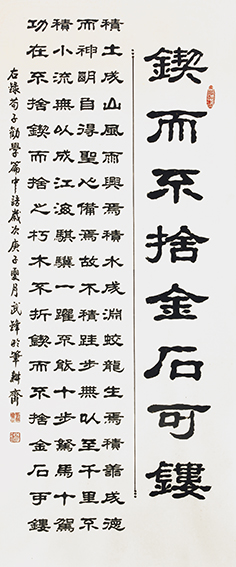 鍥而不捨金石可鏤
積土成山風雨興焉積水成淵蛟龍生焉積善成德
而神明自得聖心備焉故不積跬步無以至千里不
積小流無以成江海騏驥一躍不能十步駑馬十駕
功在不捨鍥而捨之朽木不折鍥而不捨金石可鏤
右錄荀子勸學篇中語歲次庚子夏月武於筆耕齋